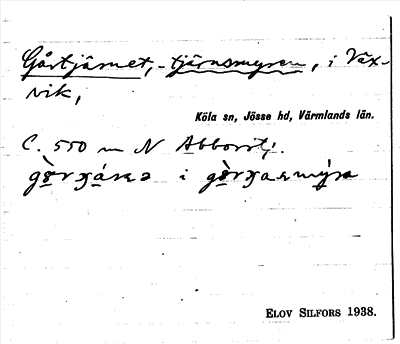 Gårtjärnet, -tjärnsmyren, i Växvik,
Köla sn, Jösse hd, Värmlands län.
C. 550 m N Abborrtj.
i
ELOV SILFORS 1938.